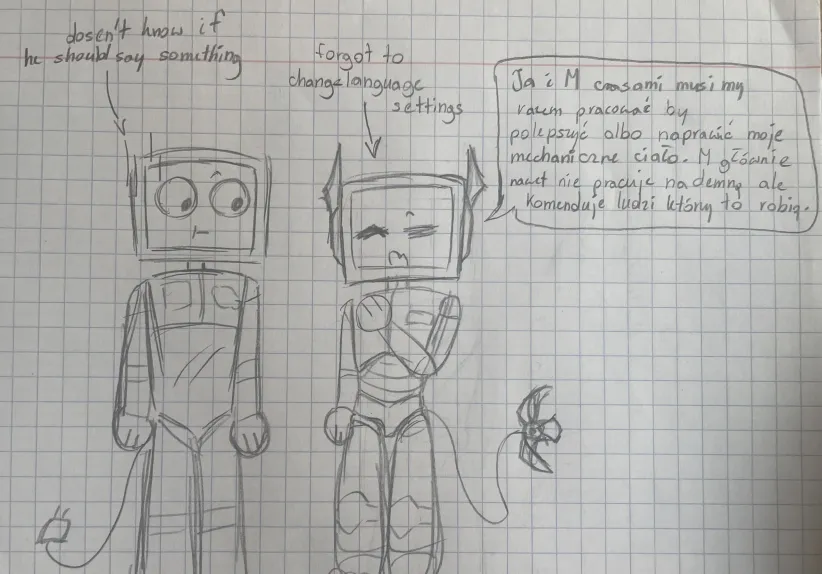 dosen't know if
he should say something
forgot to
change language
settings
Ja i M czasami musimy
razem pracować by
polepszyć albo naprawić moje
mechaniczne ciało. M głównie
nawet nie pracuje nademną ale
komenduje ludzi którzy to robią.